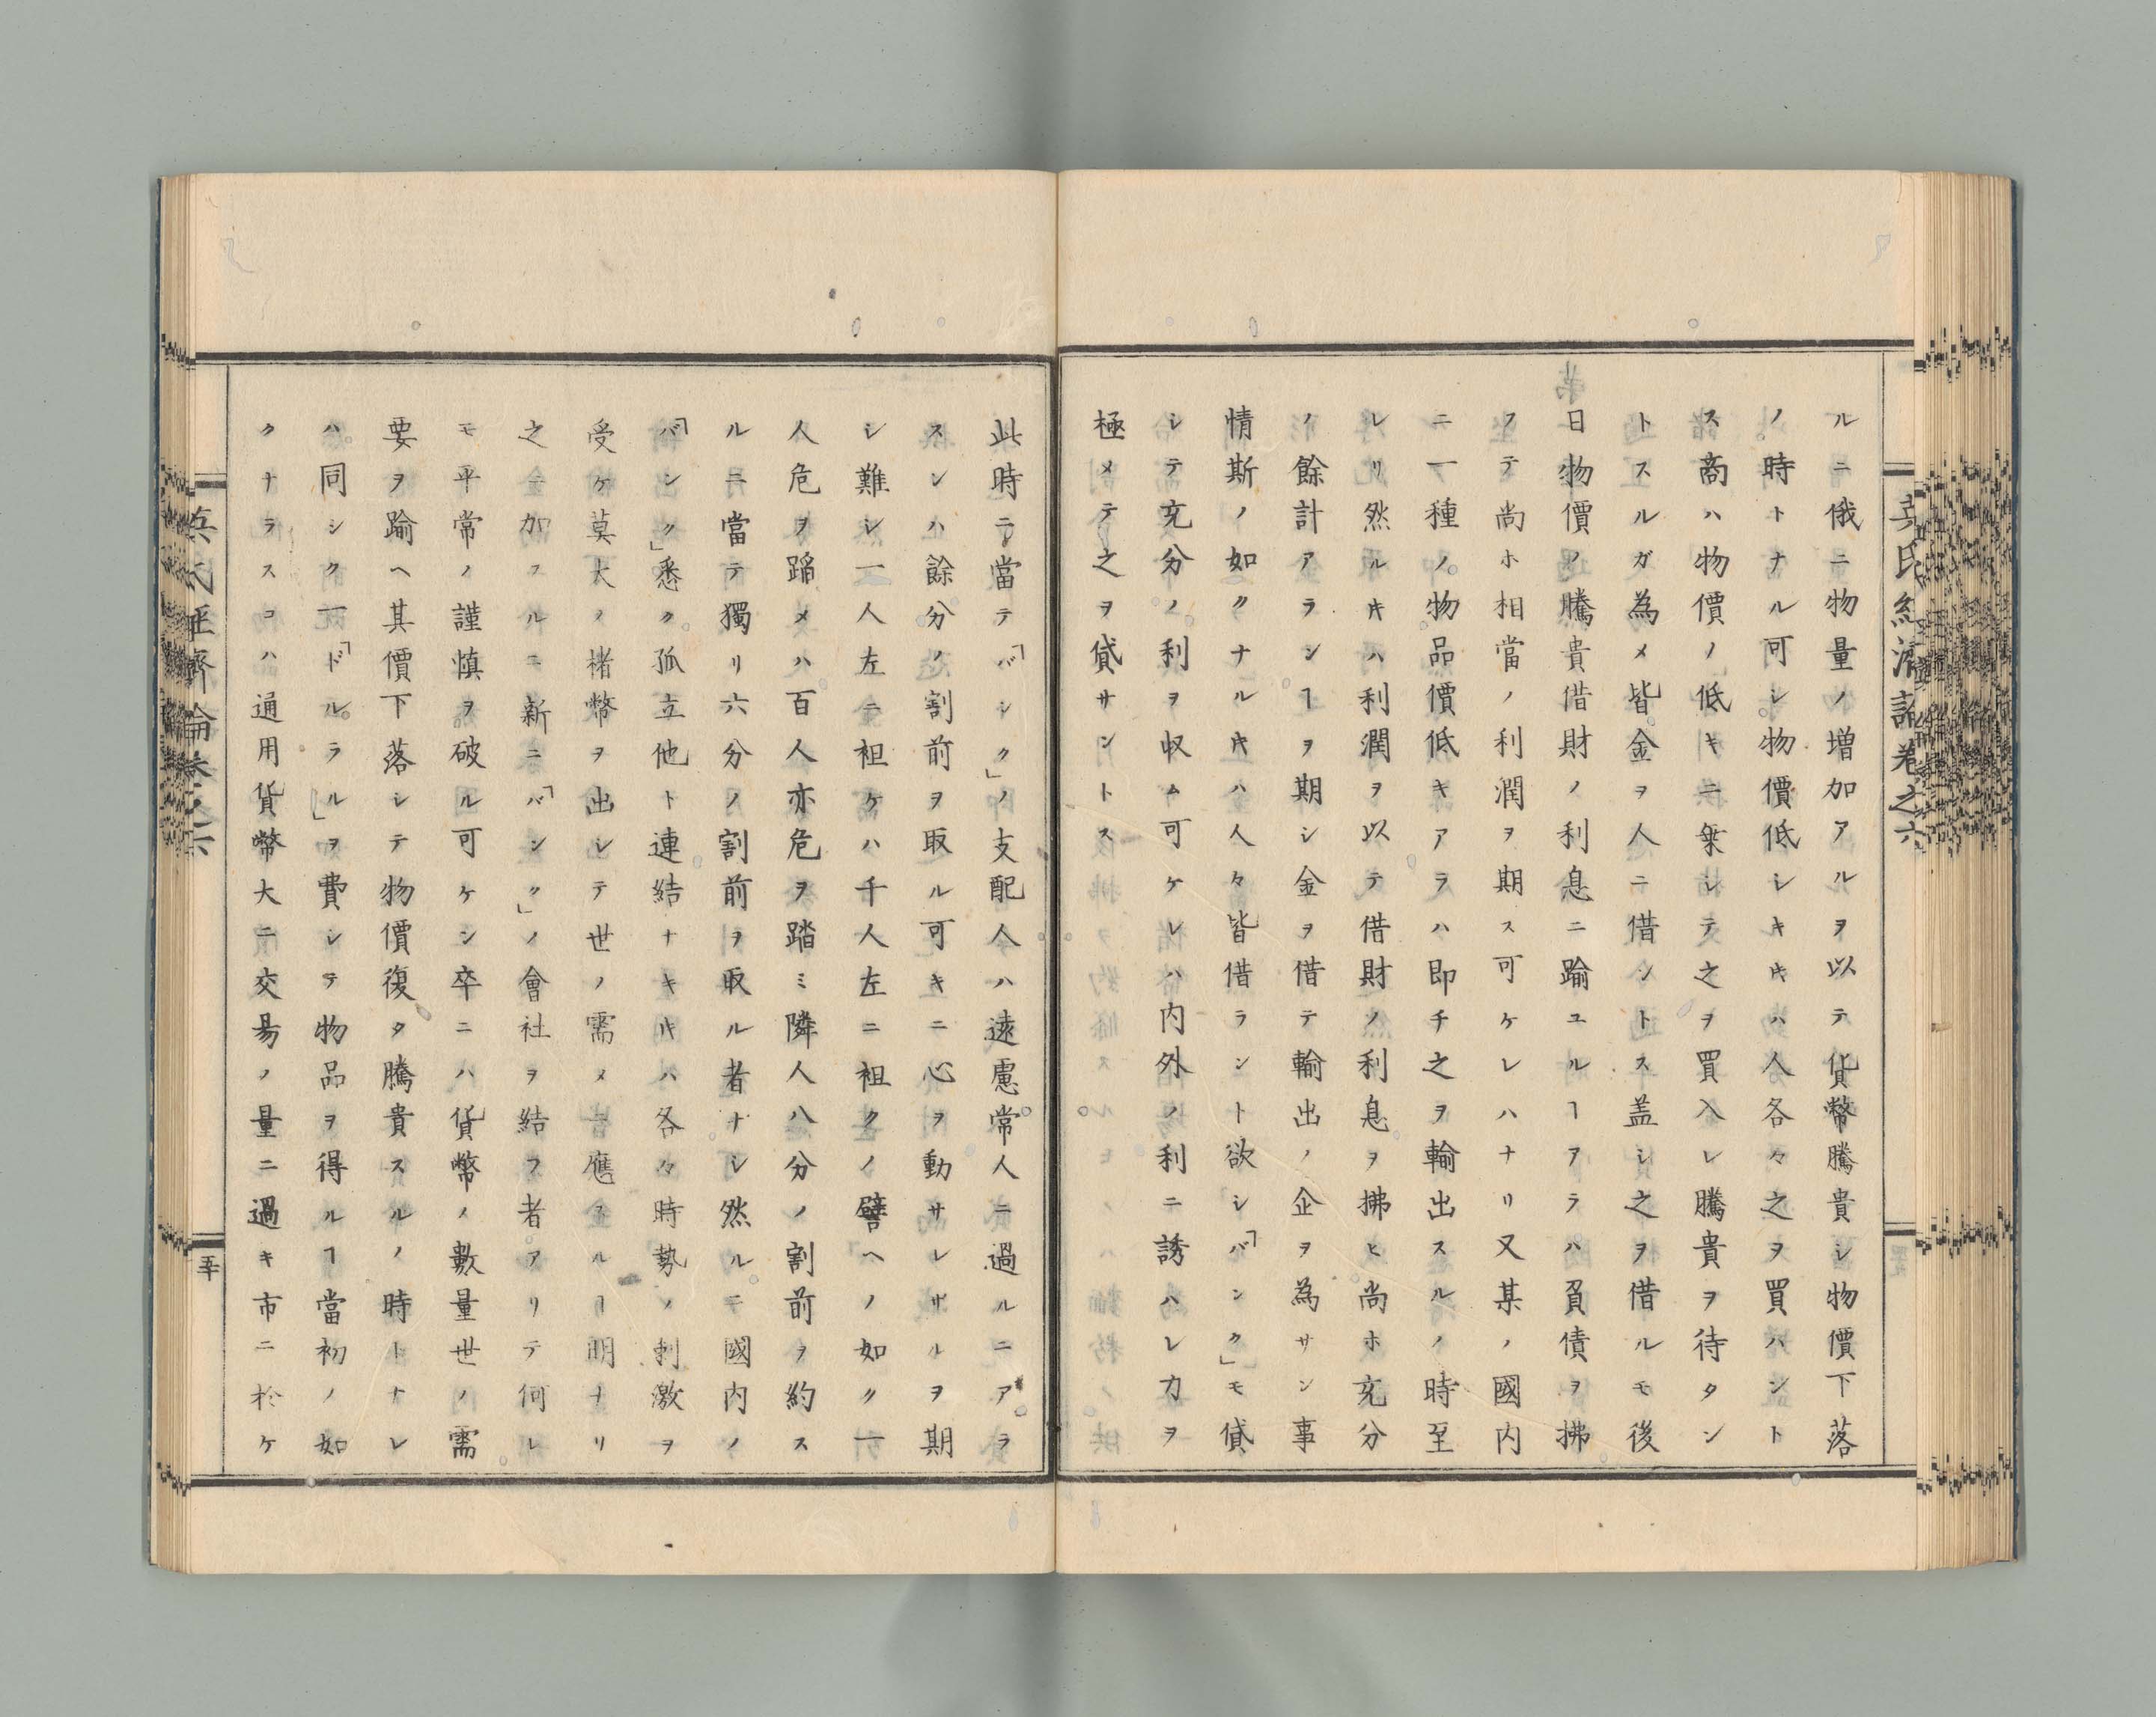 英氏經濟論卷之六
ルニ俄ニ物量ノ増加アルヲ以テ貨幣騰貴シ物價下落
ノ時トナル可シ物價低シキキハ人各々之ヲ買ハント
ス商ハ物價ノ低キニ乗シテ之ヲ買入レ騰貴ヲ待タン
トスルガ為メ皆金ヲ人ニ借ントス盖シ之ヲ借ルモ後
日物價ノ騰貴借財ノ利息ニ踰ユルヿアラハ負債ヲ拂
フテ尚ホ相當ノ利潤ヲ期ス可ケレハナリ又某ノ國内
ニ一種ノ物品價低キアラハ即チ之ヲ輸出スルノ時至
レリ然ルキハ利潤ヲ以テ借財ノ利息ヲ拂ヒ尚ホ充分
ノ餘計アランヿヲ期シ金ヲ借テ輸出ノ企ヲ為サン事
情斯ノ如クナルキハ人々皆借ラント欲シ「バンク」モ貸
シテ充分ノ利ヲ収ム可ケレハ内外ノ利ニ誘ハレ力ヲ
極メテ之ヲ貸サントス
此時ニ當テ「バンク」ノ支配人ハ遠慮常人ニ過ルニアラ
スンハ餘分ノ割前ヲ取ル可キニ心ヲ動サレザルヲ期
シ難シ一人左ニ袒ケハ千人左ニ袒クノ譬ヘノ如ク一
人危ヲ蹈メハ百人亦危ヲ踏ミ隣人八分ノ割前ヲ約ス
ルニ當テ獨リ六分ノ割前ヲ取ル者ナシ然ルニ國内ノ
「バンク」悉ク孤立他ト連結ナキキハ各々時勢ノ刺激ヲ
受ケ莫大ノ楮幣ヲ出シテ世ノ需メニ應スルヿ明ナリ
之ニ加フルニ新ニ「バンク」ノ會社ヲ結フ者アリテ何レ
モ平常ノ謹慎ヲ破ル可ケン卒ニハ貨幣ノ數量世ノ需
要ヲ踰ヘ其價下落シテ物價復タ騰貴スルノ時トナレ
ハ同シク一「ドルラル」ヲ費シテ物品ヲ得ルヿ當初ノ如
クナラスコハ通用貨幣大ニ交易ノ量ニ過キ市ニ於ケ
英氏經濟論卷之六
五十